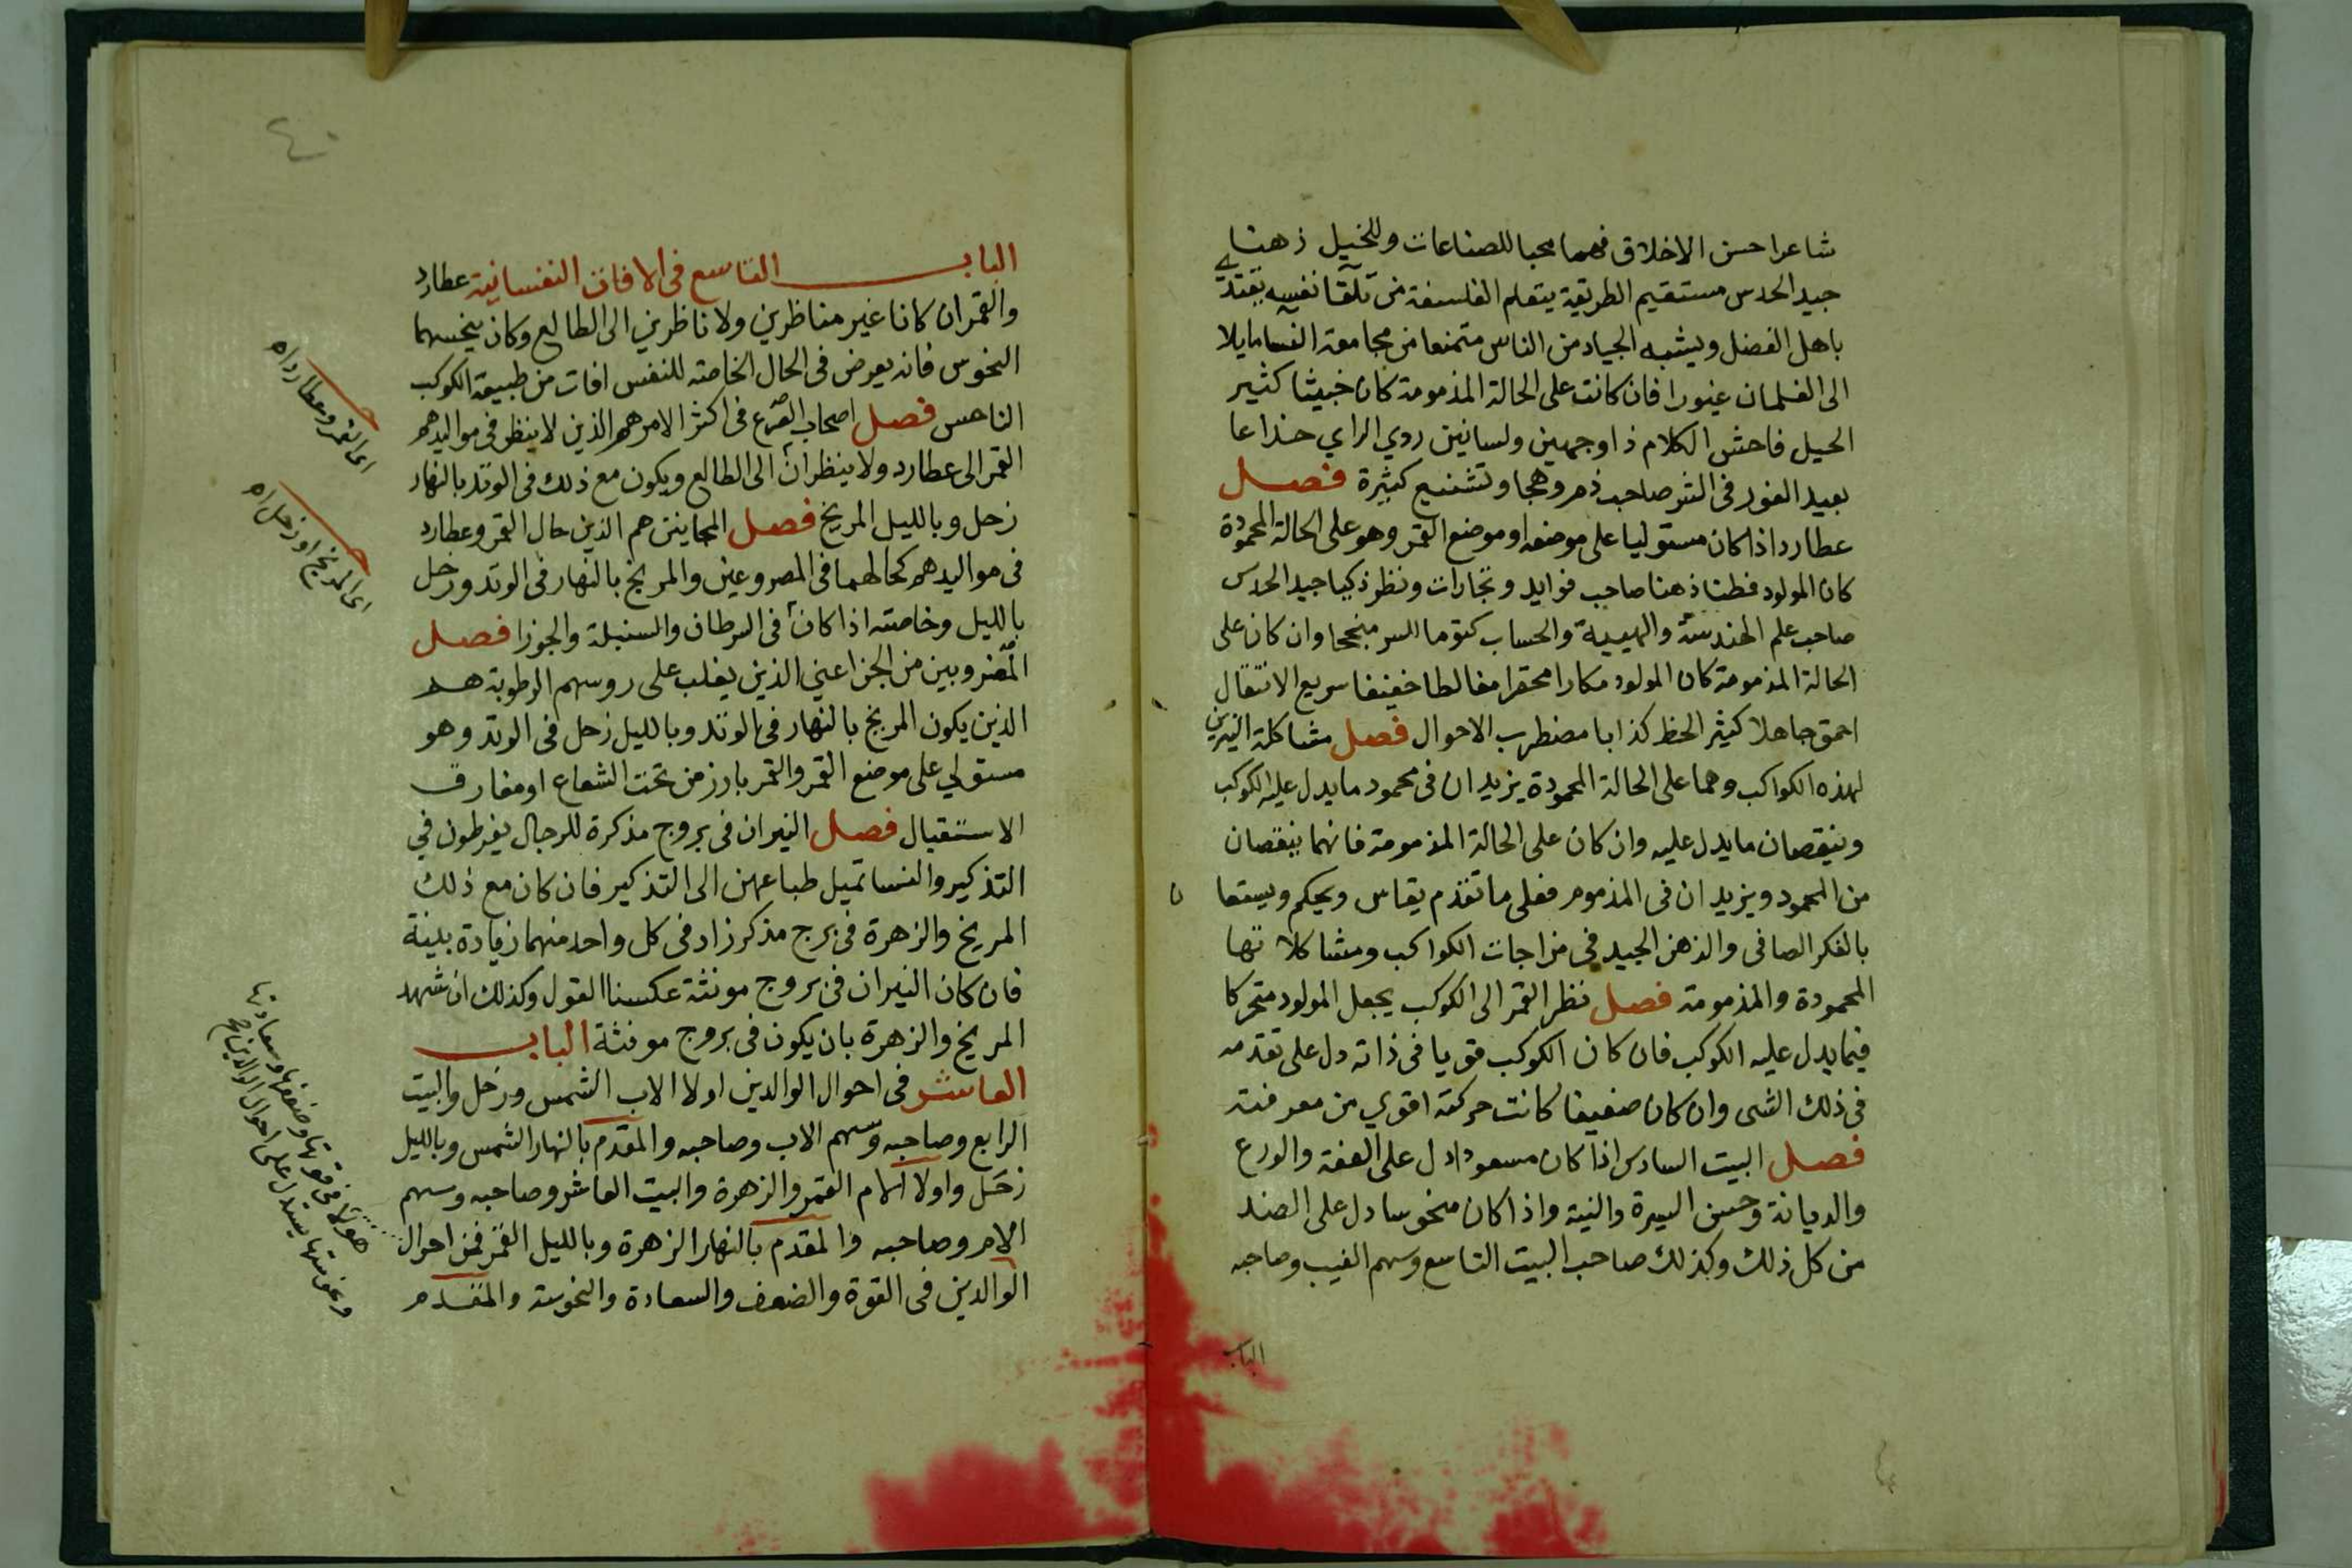 شاعرا حسن الاخلاق فهما محبا للصناعات وللخيل ذهنا
جيد الحدس مستقيم الطريقة يتعلم الفلسفة من تلقا نفسه يقتدي
باهل الفضل ويشبه الجياد من الناس متمنعا من مجامعة النسا مايلا
الى الغلمان غيورا فان كانت على الحالة المذمومة كان خبيثا كثير
الحيل فاحش الكلام ذا وجهين ولسانين ردي الراي خداعا
بعيد الغور فى الشر صاحب ذم وهجا وتشنيع كثيرة فصل
عطارد اذا كان مستوليا على موضعه او موضع القمر وهو على الحالة المحمودة
كان المولود فطنا ذهنا صاحب فوايد وتجارات ونظر ذكيا جيد الحدس
صاحب علم الهندسة والهيية والحساب كتوما للسر منجحا وان كان على
الحالة المذمومة كان المولود مكارا محقرا مغالطا خفيفا سريع الانتقال
احمق جاهلا كثير الحظ كذابا مضطرب الاحوال فصل مشاكلة النيرين
لهذه الكواكب وهما على الحالة المحمودة يزيدان فى محمود ما يدل عليه الكوكب
وينقصان ما يدل عليه وان كان على الحالة المذمومة فانهما ينقصان
من المحمود ويزيدان فى المذموم فعلى ما تقدم يقاس ويحكم ويستعا ن
بالفكر الصافى والذهن الجيد فى مزاجات الكواكب ومشاكلا تها
المحمودة والمذمومة فصل نظر القمر الى الكوكب يجعل المولود متحركا
فيما يدل عليه الكوكب فان كان الكوكب قويا فى ذاته دل على تقدمه
فى ذلك الشى وان كان ضعيفا كانت حركته اقوي من معرفته
فصل البيت السادس اذا كان مسعودا دل على العفة والورع
والديانة وحسن السيرة والنية واذا كان منحوسا دل على الضد
من كل ذلك وكذلك صاحب البيت التاسع وسهم الغيب وصاحبه
الباب
الباب التاسع فى الافات النفسانية عطارد
والقمر ان كانا غير متناظرين ولا ناظرين الى الطالع وكان ينحسهما
النحوس فانه يعرض فى الحال الخاصة للنفس افات من طبيعة الكوكب
الناحس فصل اصحاب الصرع فى اكثر الامر هم الذين لا ينظر فى مواليدهم
القمر الى عطارد ولا ينظران الى الطالع ويكون مع ذلك فى الوتد بالنهار
زحل وبالليل المريخ فصل المجانين هم الذين حال القمر وعطارد
فى مواليدهم كحالهما فى المصروعين والمريخ بالنهار فى الوتد وزحل
بالليل وخاصته اذا كان فى السرطان والسنبلة والجوزا فصل
المضروبين من الجن اعني الذين يغلب على روسهم الرطوبة هم
الذين يكون المريخ بالنهار فى الوتد وبالليل زحل فى الوتد وهو
مستولي على موضع القمر والقمر بارز من تحت الشعاع او مفارق
الاستقبال فصل النيران فى بروج مذكرة للرجال يفرطون في
التذكير والنسا تميل طباعهن الى التذكير فان كان مع ذلك
المريخ والزهرة فى برج مذكر زاد فى كل واحد منهما زيادة بينة
فان كان النيران فى بروج مونثة عكسنا القول وكذلك ان شهد
المريخ والزهرة بان يكون فى بروج مونثة الباب
العاشر فى احوال الوالدين اولا الاب الشمس وزحل والبيت
الرابع وصاحبه وسهم الاب وصاحبه والمقدم بالنهار الشمس وبالليل
زحل واولا الام القمر والزهرة والبيت العاشر وصاحبه وسهم
الام وصاحبه والمقدم بالنهار الزهرة وبالليل القمر فمن احوال
الوالدين فى القوة والضعف والسعادة والنحوسة والمتقدم
اى القمر وعطارد اه
اى المريخ او زحل اه
هولا فى قوتها وضعفها وسعادتها
ونحوستها يستدل على احوال الوالدين